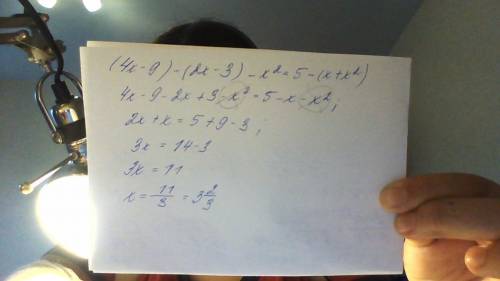 (4x-9)-(2x-3)-x²=5-(x+x²)
4x-9-2x+3-x²=5-x-x²;
2x+x=5+9-3;
3x=14-3
3x=11
x=11/3=3 2/3